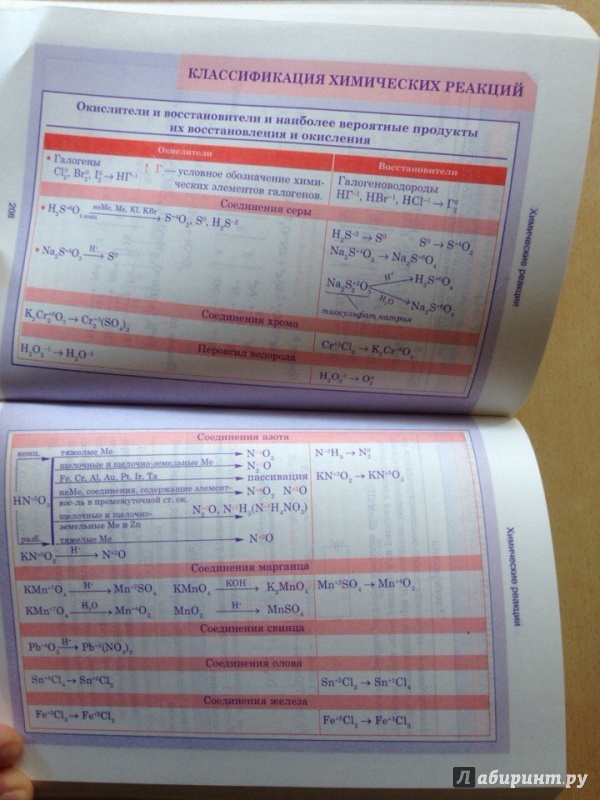 КЛАССИФИКАЦИЯ ХИМИЧЕСКИХ РЕАКЦИЙ
Окислители и восстановители и наиболее вероятные продукты
их восстановления и окисления
Окислители
Восстановители
• Галогены
Cl₂⁰, Br₂⁰, I₂⁰ → HГ⁻¹
! Г — условное обозначение хими-
ческих элементов галогенов.
Галогеноводороды
HГ⁻¹, HBr⁻¹, HCl⁻¹ → Г₂⁰
Соединения серы
• H₂S⁺⁶O₄ конц. неМе, Ме, KI, KBr → S⁺⁴O₂, S⁰, H₂S⁻²
• Na₂S⁺⁴O₂ H⁺ → S⁰
H₂S⁻² → S⁰ S⁰ → S⁺⁴O₂
Na₂S⁺⁴O₃ → Na₂S⁺⁶O₄
Na₂S₂⁺²O₃ H⁺ → H₂S⁺⁶O₄
H₂O → Na₂S⁺⁶O₄
тиосульфат натрия
Соединения хрома
K₂Cr₂⁺⁶O₇ → Cr₂⁺³(SO₄)₃
Cr⁺³Cl₃ → K₂Cr⁺⁶O₄
Пероксид водорода
H₂O₂⁻¹ → H₂O⁻²
H₂O₂⁻¹ → O₂⁰
206
Химические реакции
Соединения азота
конц.
тяжелые Ме → N⁺⁴O₂
щелочные и щелочно-земельные Ме → N₂⁺¹O
Fe, Cr, Al, Au, Pt, Ir, Ta пассивация
HN⁺⁵O₃
неМе, соединения, содержащие элемент- → N⁺⁴O₂ N⁺²O
вос-ль в промежуточной ст. ок.
щелочные и щелочно-
земельные Ме и Zn → N₂⁺¹O, N⁻³H₃(N⁻³H₄NO₃)
разб. тяжелые Ме → N⁺²O
KN⁺³O₂ H⁺ → N⁺²O
N⁻³H₃ → N₂⁰
KN⁺³O₂ → KN⁺⁵O₃
Соединения марганца
KMn⁺⁷O₄ H⁺ → Mn⁺²SO₄ KMnO₄ KOH → K₂MnO₄
KMn⁺⁷O₄ H₂O → Mn⁺⁴O₂ MnO₂ H⁺ → MnSO₄
Mn⁺²SO₄ → Mn⁺⁴O₂
Соединения свинца
Pb⁺⁴O₂ H⁺ → Pb⁺²(NO₃)₂
Соединения олова
Sn⁺⁴Cl₄ → Sn⁺²Cl₂
Sn⁺²Cl₂ → Sn⁺⁴Cl₄
Соединения железа
Fe⁺³Cl₃ → Fe⁺²Cl₂
Fe⁺²Cl₂ → Fe⁺³Cl₃
Химические реакции
Лабиринт.ру